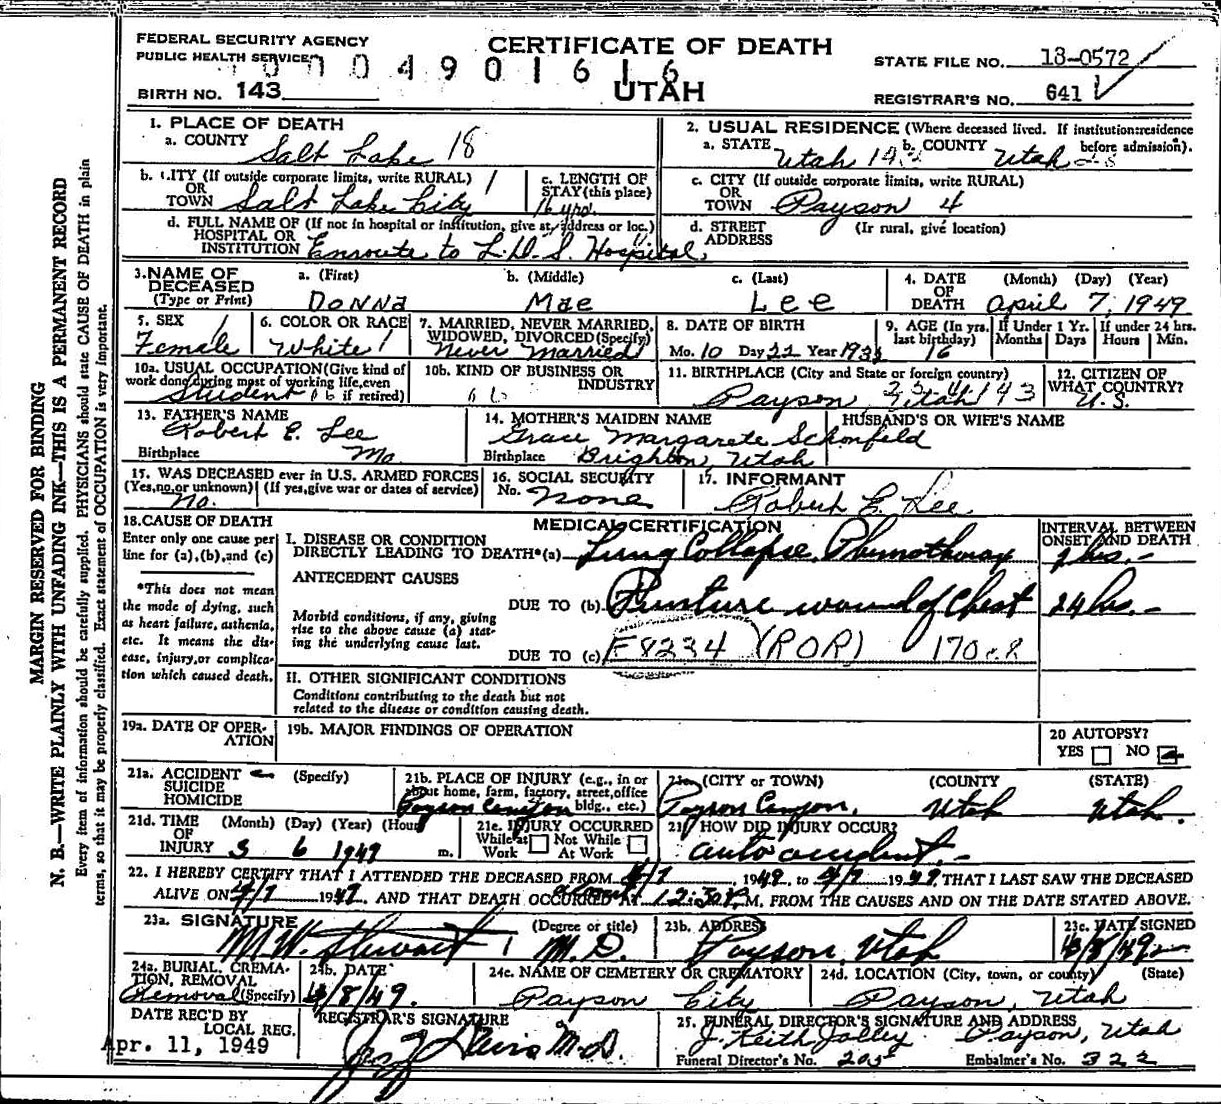 FEDERAL SECURITY AGENCY
PUBLIC HEALTH SERVICE
CERTIFICATE OF DEATH
0 4 9 0 1 6 1 6
UTAH
BIRTH NO. 143
STATE FILE NO. 18-0572
REGISTRAR'S NO. 641
1. PLACE OF DEATH
a. COUNTY Salt Lake 18
2. USUAL RESIDENCE (Where deceased lived. If institution:residence before admission).
a. STATE Utah b. COUNTY Utah
b. CITY (If outside corporate limits, write RURAL)
OR
TOWN Salt Lake City
c. LENGTH OF
STAY (this place)
c. CITY (If outside corporate limits, write RURAL)
OR
TOWN Payson 4
d. FULL NAME OF (If not in hospital or institution, give st. address or loc.)
HOSPITAL OR
INSTITUTION Enroute to L.D.S. Hospital.
d. STREET (Ir rural, give location)
ADDRESS
3. NAME OF
DECEASED
(Type or Print)
a. (First) Donna
b. (Middle) Mae
c. (Last) Lee
4. DATE OF DEATH (Month) (Day) (Year)
April 7, 1949
5. SEX
Female
6. COLOR OR RACE
White
7. MARRIED, NEVER MARRIED,
WIDOWED, DIVORCED (Specify)
Never Married
8. DATE OF BIRTH
Mo. 10 Day 22 Year
9. AGE (In yrs. last birthday)
16
If Under 1 Yr. Months Days
If under 24 hrs. Hours Min.
10a. USUAL OCCUPATION (Give kind of
work done during most of working life, even
if retired)
Student
10b. KIND OF BUSINESS OR
INDUSTRY
11. BIRTHPLACE (City and State or foreign country)
Payson Utah 143
12. CITIZEN OF
WHAT COUNTRY?
U.S.
13. FATHER'S NAME
Robert E. Lee
Birthplace Mo
14. MOTHER'S MAIDEN NAME
Grace Margarete Schonfeld
Birthplace Brighton, Utah
HUSBAND'S OR WIFE'S NAME
15. WAS DECEASED ever in U.S. ARMED FORCES
(Yes, no, or unknown) (If yes, give war or dates of service)
No.
16. SOCIAL SECURITY
No. None
17. INFORMANT
Robert E. Lee
18. CAUSE OF DEATH
Enter only one cause per
line for (a), (b), and (c)
*This does not mean
the mode of dying, such
as heart failure, asthenia,
etc. It means the dis-
ease, injury, or complica-
tion which caused death.
MEDICAL CERTIFICATION
I. DISEASE OR CONDITION
DIRECTLY LEADING TO DEATH*(a) Lung Collapse,
INTERVAL BETWEEN
ONSET AND DEATH
hrs.-
ANTECEDENT CAUSES
DUE TO (b) Punture wound of Chest 24 hrs.-
Morbid conditions, if any, giving
rise to the above cause (a) stat-
ing the underlying cause last.
DUE TO (c) E8234 (ROR) 170
II. OTHER SIGNIFICANT CONDITIONS
Conditions contributing to the death but not
related to the disease or condition causing death.
19a. DATE OF OPER-
ATION
19b. MAJOR FINDINGS OF OPERATION
20 AUTOPSY?
YES NO
21a. ACCIDENT (Specify)
SUICIDE
HOMICIDE
21b. PLACE OF INJURY (e.g., in or
about home, farm, factory, street, office
bldg., etc.)
Payson Canyon
21c. (CITY or TOWN) (COUNTY) (STATE)
Payson Canyon, Utah Utah.
21d. TIME (Month) (Day) (Year) (Hour)
OF
INJURY 6 1949 m.
21e. INJURY OCCURRED
While at Work Not While At Work
21f HOW DID INJURY OCCUR?
auto accident.-
22. I HEREBY CERTIFY THAT I ATTENDED THE DECEASED FROM 4/7 1949, to 4/7 1949, THAT I LAST SAW THE DECEASED
ALIVE ON 4/7 1949, AND THAT DEATH OCCURRED AT about 12:30 P.M, FROM THE CAUSES AND ON THE DATE STATED ABOVE.
23a. SIGNATURE (Degree or title)
M. W. Stewart M.D.
23b. ADDRESS
Payson, Utah
23c. DATE SIGNED
4/8/49
24a. BURIAL, CREMA-
TION, REMOVAL
Removal (Specify)
24b. DATE
4/8/49.
24c. NAME OF CEMETERY OR CREMATORY
Payson City
24d. LOCATION (City, town, or county) (State)
Payson, Utah
DATE REC'D BY
LOCAL REG.
Apr. 11, 1949
REGISTRAR'S SIGNATURE
M.D.
25. FUNERAL DIRECTOR'S SIGNATURE AND ADDRESS
J. Keith Jolley Payson, Utah
Funeral Director's No. 205 Embalmer's No. 322
MARGIN RESERVED FOR BINDING
N. B.—WRITE PLAINLY WITH UNFADING INK—THIS IS A PERMANENT RECORD
Every item of information should be carefully supplied. PHYSICIANS should state CAUSE OF DEATH in plain
terms, so that it may be properly classified. Exact statement of OCCUPATION is very important.